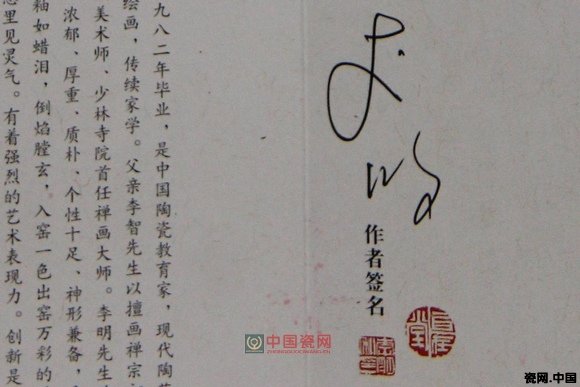 九八二年毕业，是中国陶瓷教育家，现代陶
绘画，传续家学。父亲李智先生以擅画禅宗
美术师、少林寺院首任禅画大师。李明先生
浓郁、厚重、质朴、个性十足、神形兼备，
釉如蜡泪，倒焰膛玄，入窑一色出窑万彩的
意里见灵气。有着强烈的艺术表现力。创新是
作者签名
中国瓷网
瓷网.中国